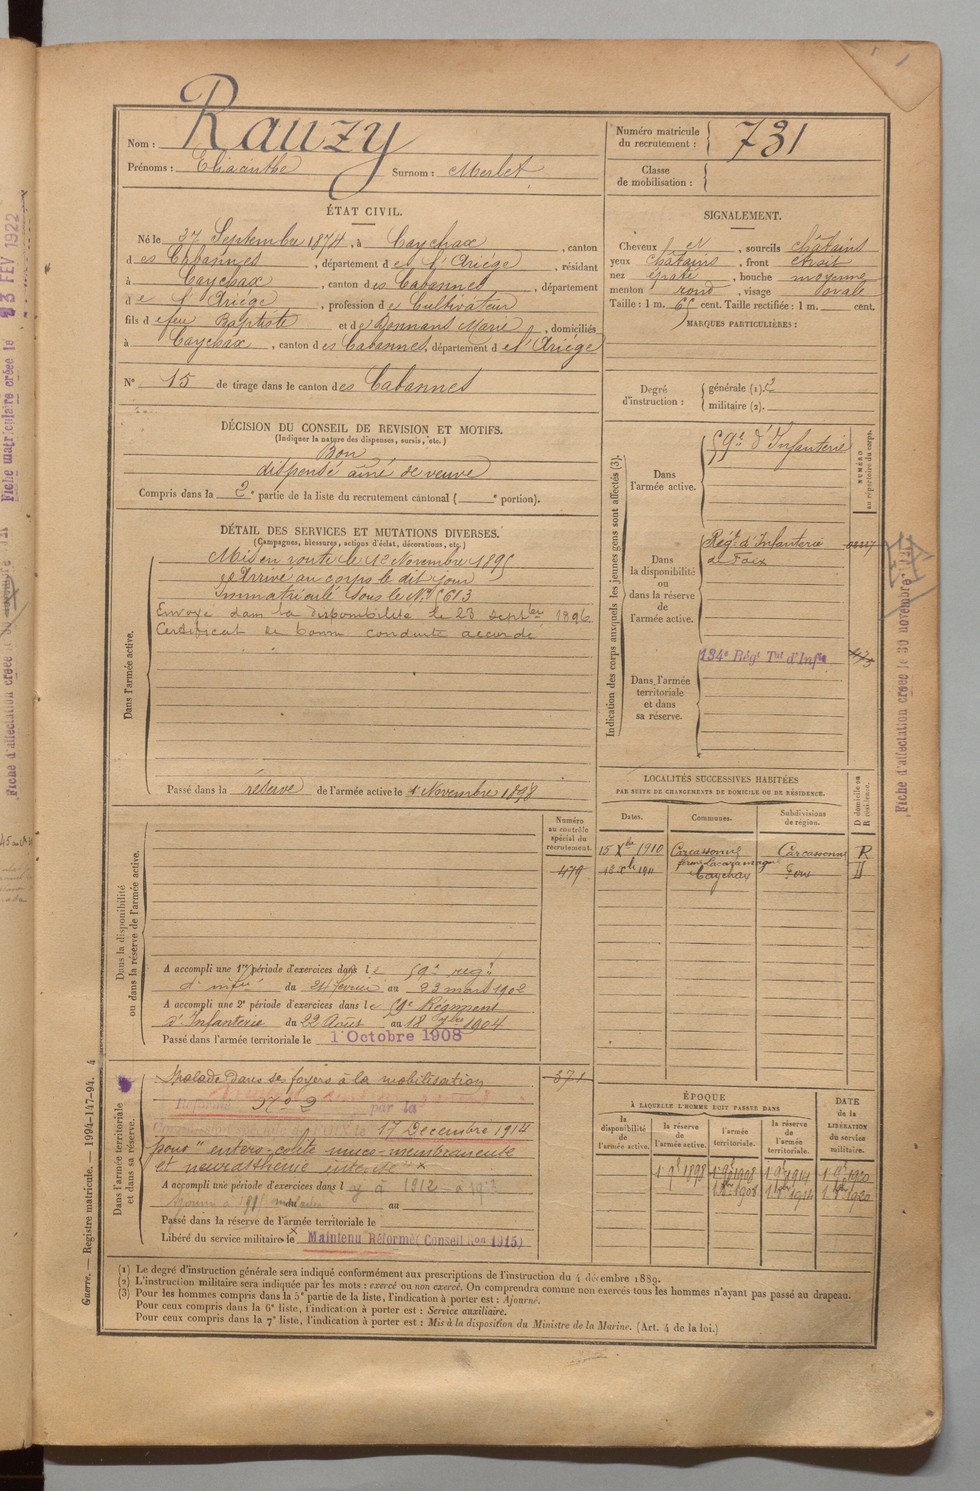 Nom : Rauzy
Prénoms : Surnom : Merlet
Numéro matricule du recrutement : 731
Classe de mobilisation :
ÉTAT CIVIL.
Né le Septembre 1874, à Caychax, canton
des Cabannes, département de l'Ariége, résidant
à Caychax, canton des Cabannes, département
de l'Ariége, profession de Cultivateur
fils de feu Baptiste et de Marie, domiciliés
à Caychax, canton des Cabannes, département de l'Ariége
N° 15 de tirage dans le canton des Cabannes
SIGNALEMENT.
Cheveux et, sourcils châtains
yeux châtains, front étroit
nez épaté, bouche moyenne
menton rond, visage ovale
Taille : 1 m. 65 cent. Taille rectifiée : 1 m. cent.
MARQUES PARTICULIÈRES :
Degré d'instruction : générale (1). 2
militaire (2).
DÉCISION DU CONSEIL DE REVISION ET MOTIFS.
(Indiquer la nature des dispenses, sursis, etc.)
Bon
dispensé ainé de veuve
Compris dans la 2e partie de la liste du recrutement cantonal ( e portion).
DÉTAIL DES SERVICES ET MUTATIONS DIVERSES.
(Campagnes, blessures, actions d'éclat, décorations, etc.)
Dans l'armée active.
Mis en route le Novembre 1895
Arrivé au corps le dit jour
Immatriculé sous le N° 5613
Envoyé dans la disponibilité le 23 septbre 1896
Certificat de bonne conduite accordé
Passé dans la réserve de l'armée active le 1 Novembre 1898
Indication des corps auxquels les jeunes gens sont affectés (3).
NUMÉRO au répertoire du corps.
Dans l'armée active.
59e d'Infanterie
Dans la disponibilité ou dans la réserve de l'armée active.
Régt d'Infanterie
de Foix
Dans l'armée territoriale et dans sa réserve.
134e Régt Tal d'Infie
LOCALITÉS SUCCESSIVES HABITÉES
PAR SUITE DE CHANGEMENTS DE DOMICILE OU DE RÉSIDENCE.
Dates. Communes. Subdivisions de région. D domicile ou R résidence.
15 Xbre 1910 Carcassonne Carcassonne R
Xbre 1911 Caychax Foix D
Dans la disponibilité ou dans la réserve de l'armée active.
Numéro au contrôle spécial du recrutement.
479
A accompli une 1re période d'exercices dans le 59e régt
d'infie du 24 février au 23 mars 1902
A accompli une 2e période d'exercices dans le 59e Régiment
d'Infanterie du 22 Août au 18 7bre 1904
Passé dans l'armée territoriale le 1 Octobre 1908
Dans l'armée territoriale et dans sa réserve.
371
Malade dans ses foyers à la mobilisation
Réformé N° 2 par la
17 Décembre 1914
pour "entero-colite muco-membraneuse
et neurasthenie intense" x
A accompli une période d'exercices dans l
au
Passé dans la réserve de l'armée territoriale le
Libéré du service militaire le x Maintenu Réformé (Conseil Ron 1915)
ÉPOQUE
À LAQUELLE L'HOMME DOIT PASSER DANS
la disponibilité de l'armée active. la réserve de l'armée active. l'armée territoriale. la réserve de l'armée territoriale. DATE de la LIBÉRATION du service militaire.
1 9e 1898 1 9e 1908 1 9e 1914 1 9e 1920
1908 1914 1920
(1) Le degré d'instruction générale sera indiqué conformément aux prescriptions de l'instruction du 4 décembre 1889.
(2) L'instruction militaire sera indiquée par les mots : exercé ou non exercé. On comprendra comme non exercés tous les hommes n'ayant pas passé au drapeau.
(3) Pour les hommes compris dans la 5e partie de la liste, l'indication à porter est : Ajourné.
Pour ceux compris dans la 6e liste, l'indication à porter est : Service auxiliaire.
Pour ceux compris dans la 7e liste, l'indication à porter est : Mis à la disposition du Ministre de la Marine. (Art. 4 de la loi.)
Guerre. — Registre matricule. — 1994-147-94. 4
Fiche matriculaire créée le 23 FEV 1922
Fiche d'affectation créée le 30 novembre